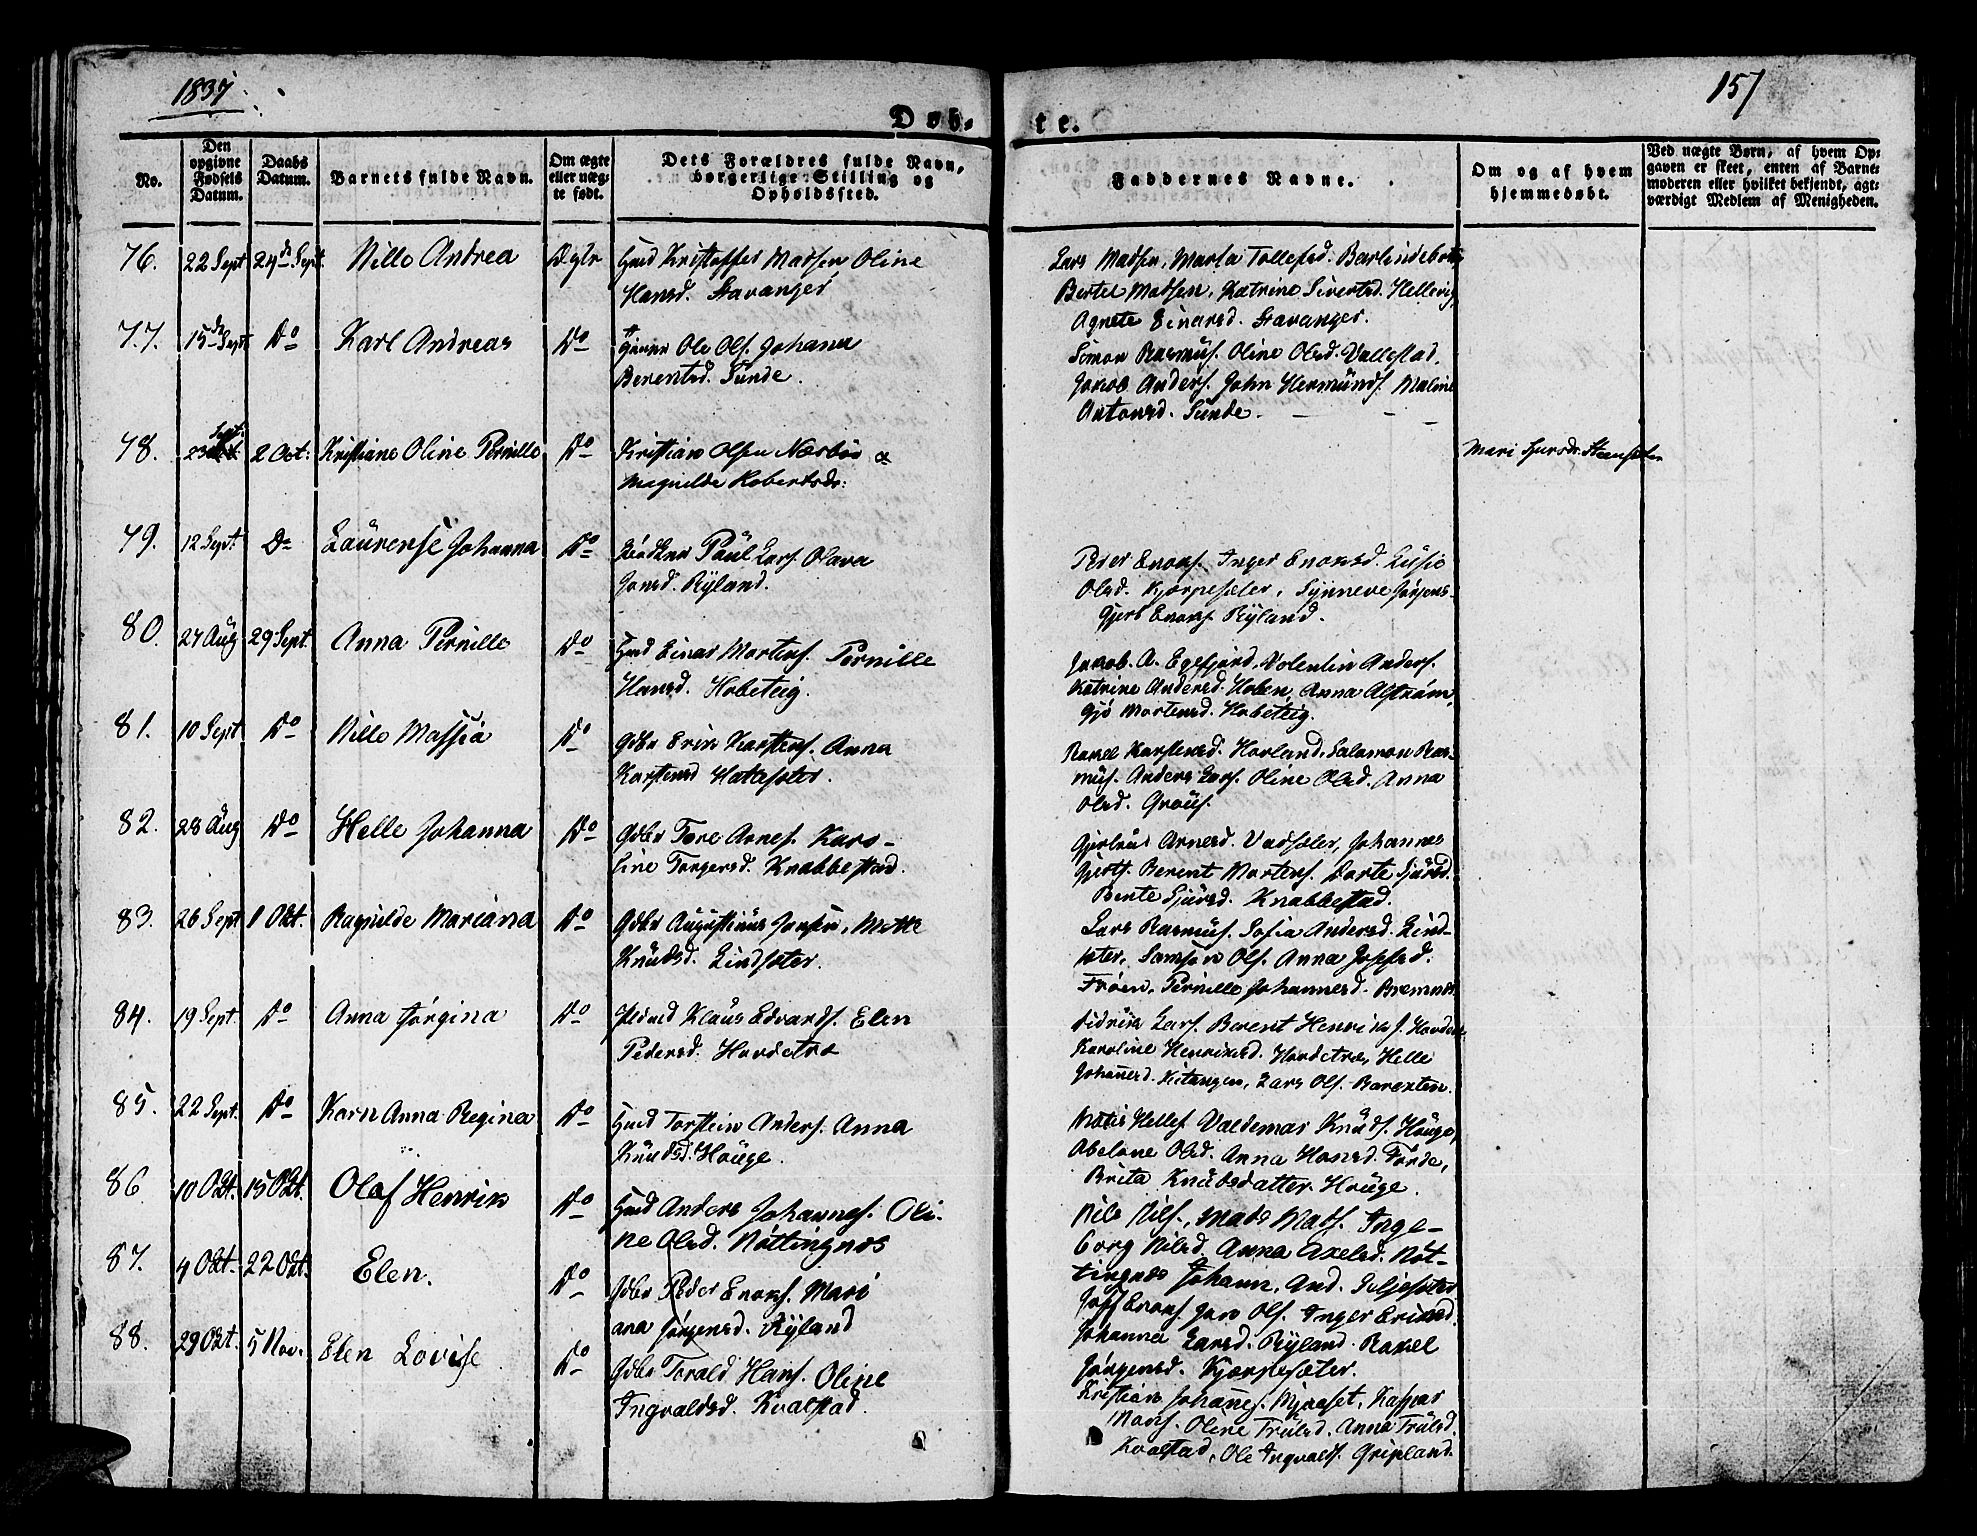 1837
157
Døb-
te.
No.
Den opgivne Fødsels Datum.
Daabs Datum.
Barnets fulde Navn.
Om ægte eller uæg-te født.
Dets Forældres fulde Navn, borgerlige Stilling og Opholdssted.
Faddernes Navne.
Om og af hvem hjemmedøbt.
Ved uægte Børn, af hvem Op-
gaven er skeet, enten af Barne-
moderen eller hvilket bekjendt, agt-
værdigt Medlem af Menigheden.
76. 22 Sept 24 d Sept. Nille Andrea Ægte Hmd Kristoffer Madsen Oline
Hansd. Stavanger
Lars Madsen, Marta Tollefsd.
Bertel Madsen, Katrine Sivertsd. Hellevig
Agnete Einarsd. Stavanger.
77. 15 d Sept. Do Karl Andreas Do Ole Ols. Johana
Berentsd. Sunde.
Simon Rasmus. Oline Olsd. Vallestad,
Jakob Anders. John Hermunds. Maline
Antonsd. Sunde.
78. 23 Sept. 2 Oct: Kristiane Oline Pernille Do Kristian Olsen Næsbøe &
Magnilde Robertsdr:
Mari
79. 12 Sept. Do Laurense Johanna Do Paul Lars. Olava
Jonsd. Ryland.
Peder Enoks. Inger Enoksd. Lusie
Olsd. Kjørpesæter, Synneve Jørgens-
Gjert Enoks. Ryland.
80. 27 Aug 29 Sept. Anna Pernille Do Hmd Einar Mortens. Pernille
Hansd. Hobeteig.
Jakob. A. Egefjord, Valentin Anders.
Katrine Andersd. Hoben, Anna Alstrøm,
Gjø Mortensd. Hobeteig.
81. 10 Sept Do Nille Massia Do Gdbr Erik Karstens. Anna
Karstensd
Rakel Karstensd. Horland, Salamon Ras-
mus. Anders Lars. Oline Olsd. Anna
Olsd.
82. 28 Aug Do Helle Johanna Do Gdbr Tore Arnes. Karo-
line Torgersd. Knabbestad.
Gjertrud Arnesd. Vadsæter, Johannes
Gjerts. Berent Mortens. Dorte Sjursd.
Bente Sjursd. Knabbestad.
83. 26 Sept 1 Okt. Ragnilde Mariana Do Gdbr Augustinus Jensen, Mette
Knudsd. Lindsæter.
Lars Rasmus. Sofia Andersd. Lind-
sæter, Samson Ols. Anna Josefsd.
Frøien, Pernille Johannesd. Bremnes
84. 19 Sept. Do Anna Jørgina Do Klaus Edvards. Elen
Pedersd. Hovdetræ
Didrik Lars. Berent Henrik J. Hovdetræ
Karoline Henriksd. Hovdetræ, Helle
Johannesd. Kitangen, Lars Ols. Barexten.
85. 22 Sept. Do Karn Anna Regina Do Hmd Torstein Anders. Anna
Knudsd. Houge.
Matis Helles. Valdemar Knuds. Houge,
Abelone Olsd. Anna Hansd. Førde,
Brita Knudsdatter Houge.
86. 10 Okt. 15 Okt. Olaf Henrik Do Hmd Anders Johannes. Oli-
ne Olsd. Nøttingnæs
Nils Nils., Mads Mads. Inge-
borg Nilsd. Anna Axelsd. Nøt-
tingnæs Johann. And. Seljesæter
87. 4 Okt. 22 Okt. Elen. Do Gdbr Peder Enoks. Mari
ana Jørgensd. Ryland
Josef Enoks. Jon Ols. Inger Eriksd.
Johanna Larsd. Ryland. Rakel
Jørgensd. Kjørpesæter.
88. 29 Okt. 5 Nov. Elen Lovise Do Gdbr Torald Hans. Oline
Ingvaldsd. Kvalstad.
Kristian Johannes. Myraset, Kasper
Oline Trulsd. Anna Trulsd.
Kvalstad, Ole Ingvalds. Gripland.